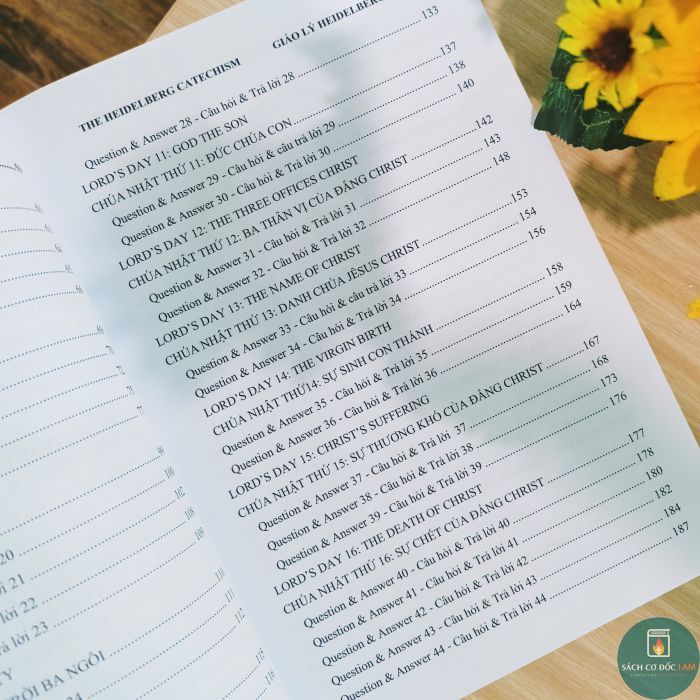 99
100
102
108
20
lời 21
lời 22
lời 23
110
111
112
115
116
THE HEIDELBERG CATECHISM GIÁO LÝ HEIDELBERG
Question & Answer 28 - Câu hỏi & Trả lời 28 133
LORD'S DAY 11: GOD THE SON
CHÚA NHẬT THỨ 11: ĐỨC CHÚA CON 137
Question & Answer 29 - Câu hỏi & câu trả lời 29 138
Question & Answer 30 - Câu hỏi & Trả lời 30 140
LORD'S DAY 12: THE THREE OFFICES CHRIST
CHÚA NHẬT THỨ 12: BA THÂN VỊ CỦA ĐẤNG CHRIST 142
Question & Answer 31 - Câu hỏi & Trả lời 31 143
Question & Answer 32 - Câu hỏi & Trả lời 32 148
LORD'S DAY 13: THE NAME OF CHRIST
CHÚA NHẬT THỨ 13: DANH CHÚA JÊSUS CHRIST 153
Question & Answer 33 - Câu hỏi & câu trả lời 33 154
Question & Answer 34 - Câu hỏi & Trả lời 34 156
LORD'S DAY 14: THE VIRGIN BIRTH
CHÚA NHẬT THỨ14: SỰ SINH CON THÁNH 158
Question & Answer 35 - Câu hỏi & Trả lời 35 159
Question & Answer 36 - Câu hỏi & Trả lời 36 164
LORD'S DAY 15: CHRIST'S SUFFERING
CHÚA NHẬT THỨ 15: SỰ THƯƠNG KHÓ CỦA ĐẤNG CHRIST 167
Question & Answer 37 - Câu hỏi & Trả lời 37 168
Question & Answer 38 - Câu hỏi & Trả lời 38 173
Question & Answer 39 - Câu hỏi & Trả lời 39 176
LORD'S DAY 16: THE DEATH OF CHRIST
CHÚA NHẬT THỨ 16: SỰ CHẾT CỦA ĐẤNG CHRIST 177
Question & Answer 40 - Câu hỏi & Trả lời 40 178
Question & Answer 41 - Câu hỏi & Trả lời 41 180
Question & Answer 42 - Câu hỏi & Trả lời 42 182
Question & Answer 43 - Câu hỏi & Trả lời 43 184
Question & Answer 44 - Câu hỏi & Trả lời 44 187
SÁCH CƠ ĐỐC 1 AM